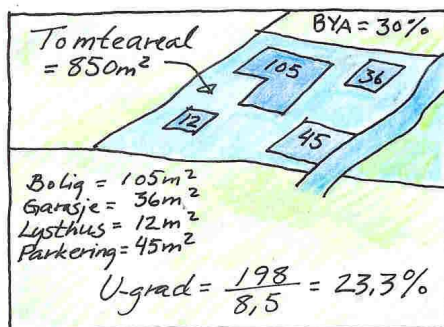 Tomteareal
= 850m²
BYA = 30%
105
36
12
45
Bolig = 105m²
Garasje = 36m²
Lysthus = 12m²
Parkering = 45m²
U-grad = 198 / 8,5 = 23,3%